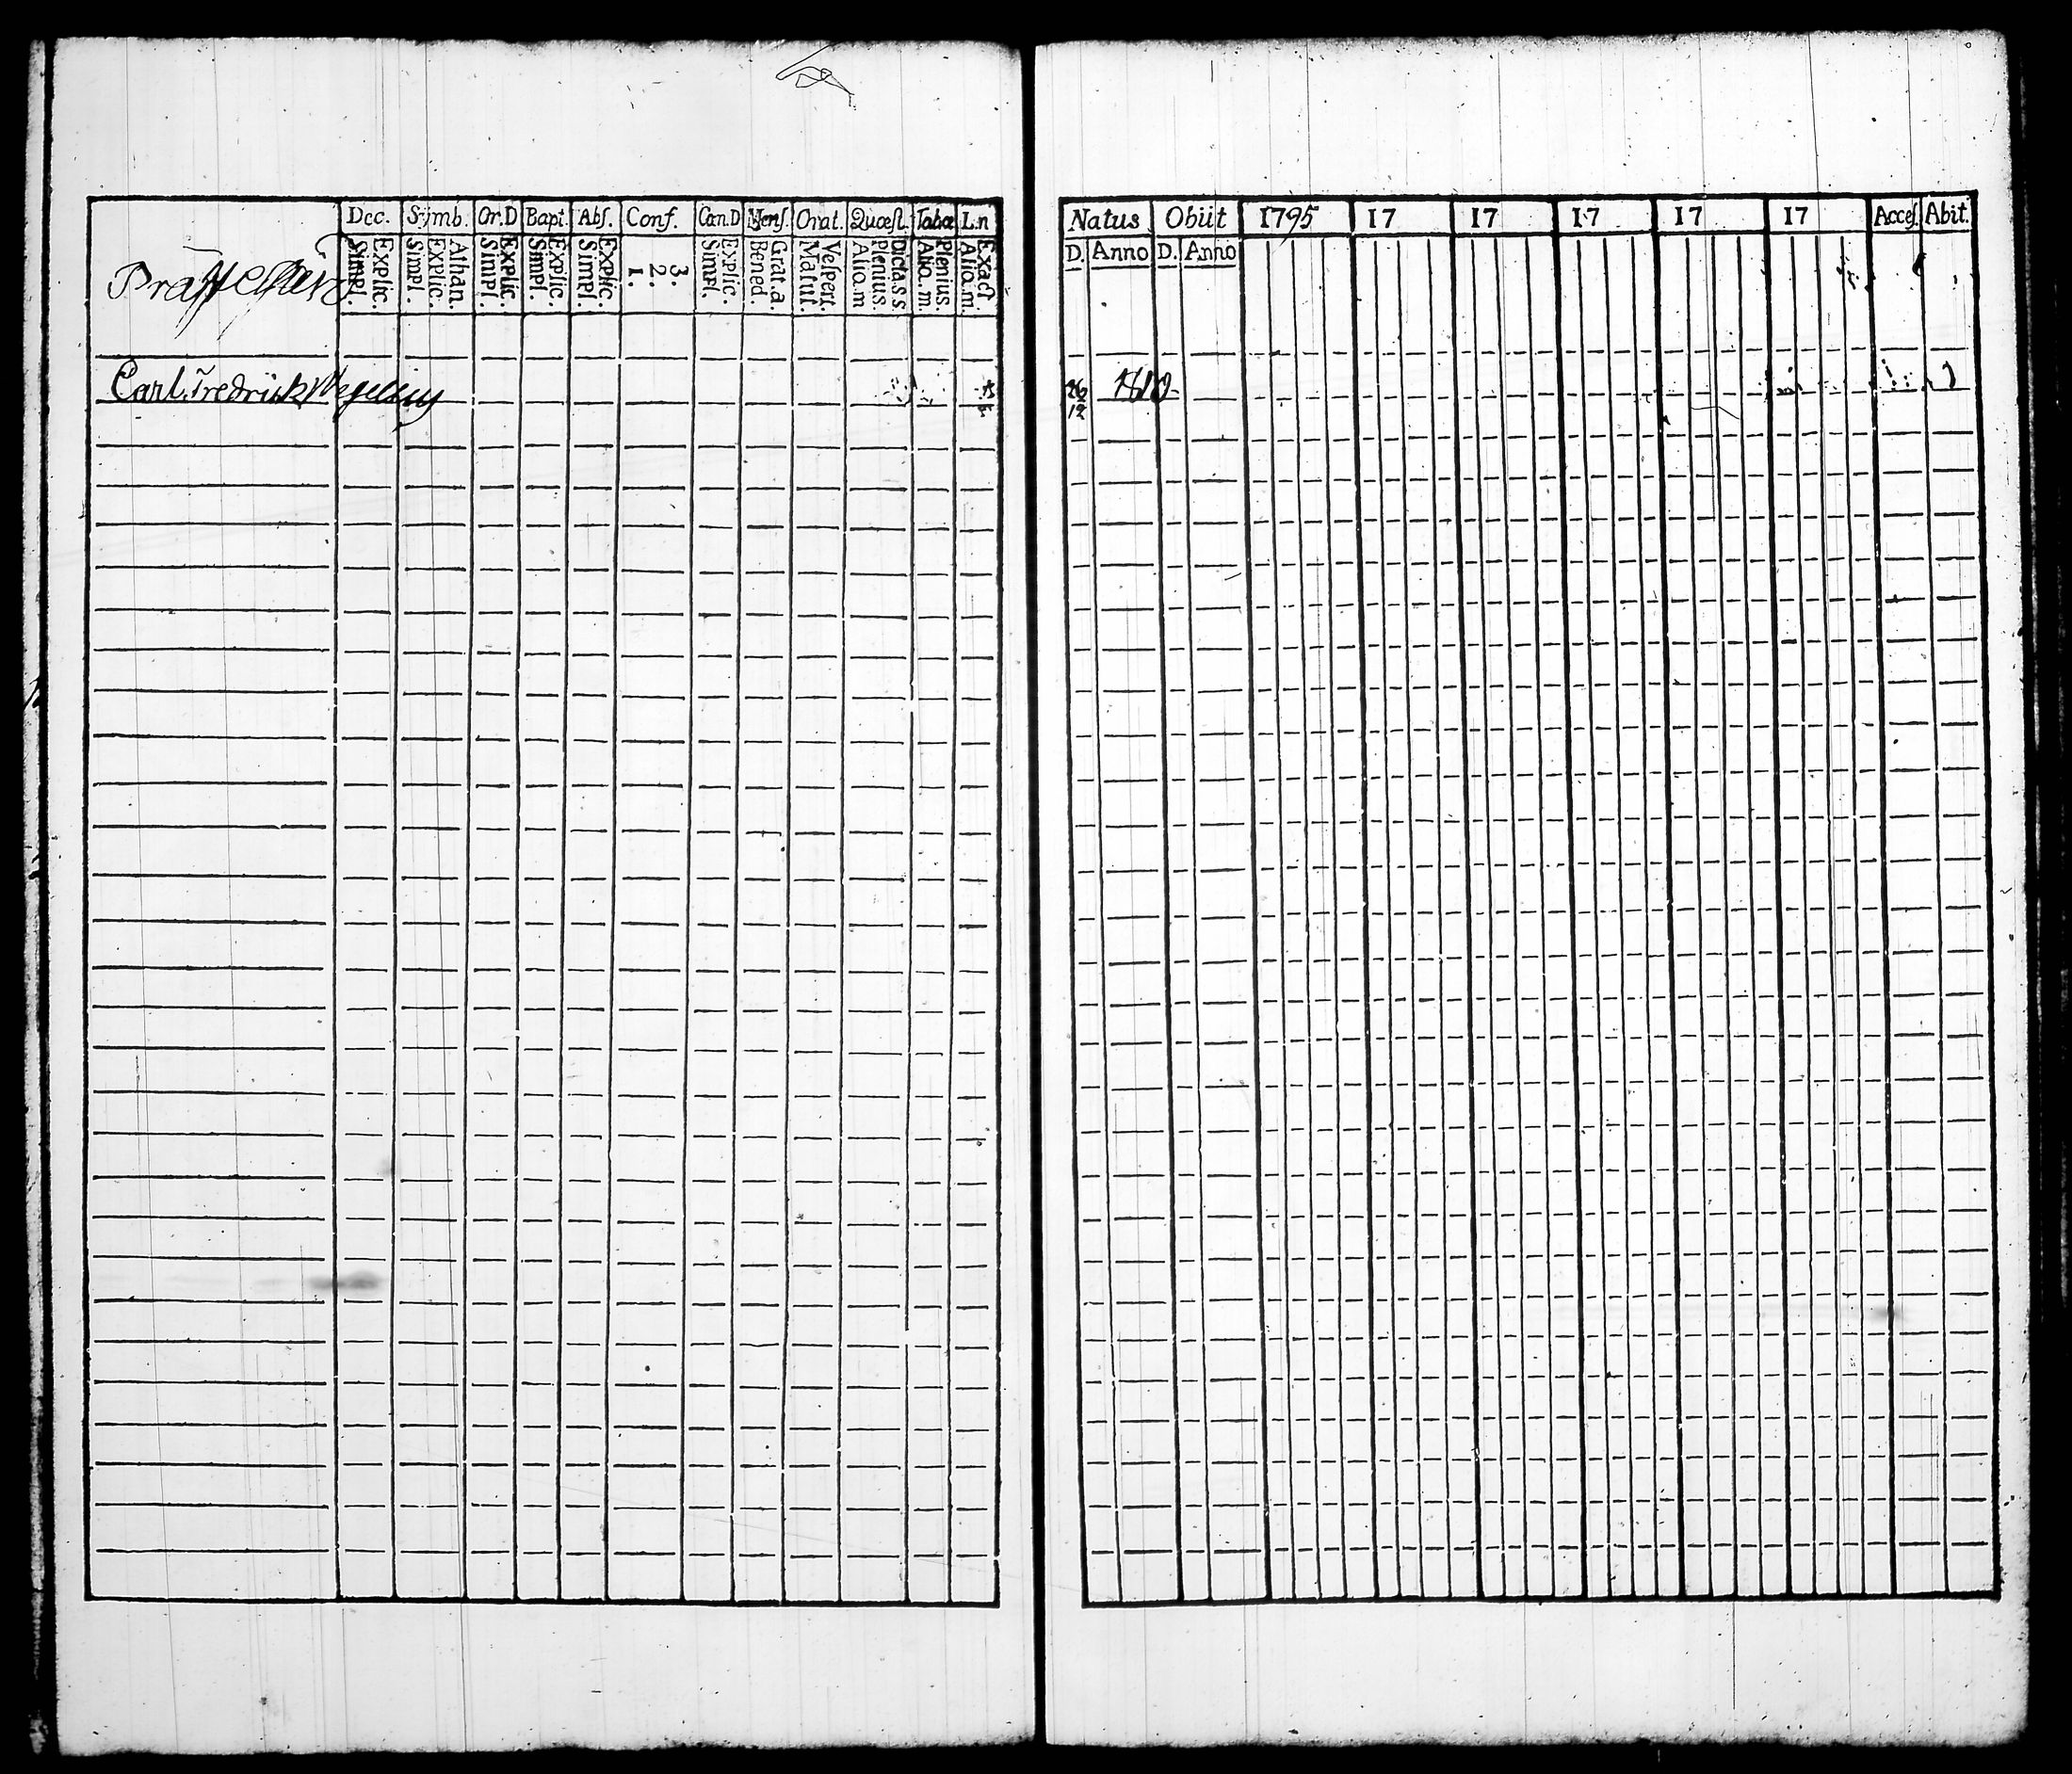 Dec. Symb. Or.D Bapt. Abſ. Conf. Can.D Menſ. Orat. Quœſt. Tabœ L.n
Explic. Simpl. Athan. Explic. Simpl. Explic. Simpl. Explic. Simpl. Explic. Simpl. 3. 2. 1. Explic. Simpl. Grat.a. Bened. Veſpert. Matut. Dicta.s s. Plenius. Alio.m Plenius. Alio.m. Exact Alio.m.
Carl Fredrick Wegelius
Natus Obiit 1795 17 17 17 17 17 Acceſ. Abit.
D. Anno D. Anno
26 12 1810